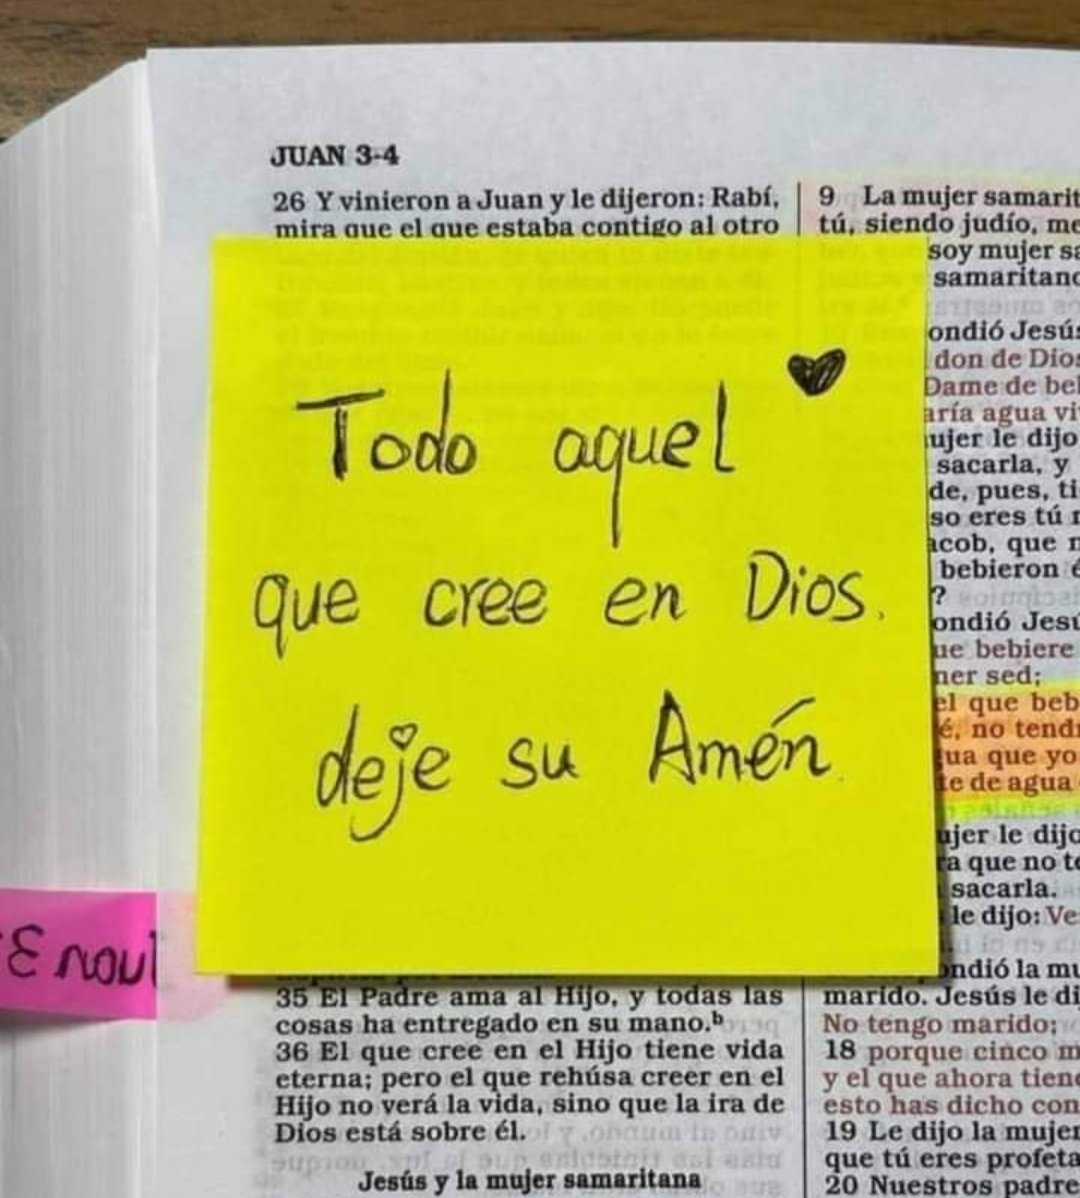 JUAN 3-4
26 Y vinieron a Juan y le dijeron: Rabí,
mira que el que estaba contigo al otro
Todo aquel
que cree en Dios.
deje su Amén.
35 El Padre ama al Hijo, y todas las
cosas ha entregado en su mano.b
36 El que cree en el Hijo tiene vida
eterna; pero el que rehúsa creer en el
Hijo no verá la vida, sino que la ira de
Dios está sobre él.
Jesús y la mujer samaritana
9 La mujer samarit
tú, siendo judío, me
soy mujer sa
samaritano
ondió Jesús
don de Dios
Dame de beb
aría agua vi
ujer le dijo
sacarla, y
de, pues, ti
so eres tú
acob, que
bebieron
?
ondió Jesú
ue bebiere
ner sed;
el que beb
é, no tend
ua que yo
te de agua
ujer le dijo
ra que no t
sacarla.
le dijo: Ve
ondió la mu
marido. Jesús le di
No tengo marido;
18 porque cinco m
y el que ahora tiene
esto has dicho con
19 Le dijo la mujer
que tú eres profeta
20 Nuestros padre
Juan 3